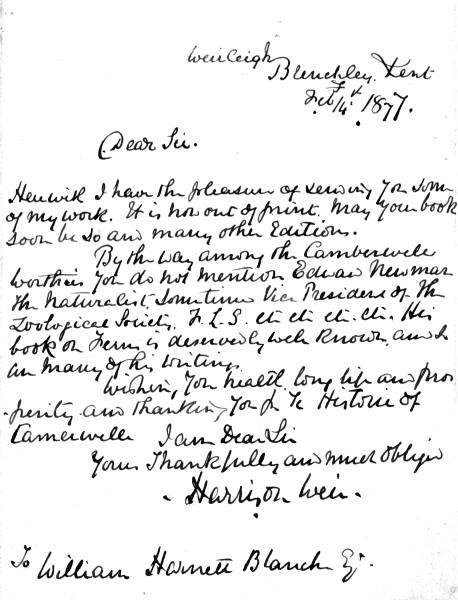 Weirleigh
Brenchley. Kent
Feb 14th 1877.
Dear Sir.
Herewith I have the pleasure of sending you some
of my work. It is now out of print. May your book
soon be so and many other Editions.
By the way among the Camberwell
worthies you do not mention Edward Newman
the Naturalist, sometime Vice President of the
Zoological Society, F.L.S. etc etc etc etc. His
book on Ferns is deservedly well known and so
are many of his writings.
Wishing you health long life and pros
-perity and thanking you for the Historie of
Camerwelle I am Dear Sir
Yours Thankfully and much obliged
Harrison Weir.
To William Harnett Blanch Esqr.